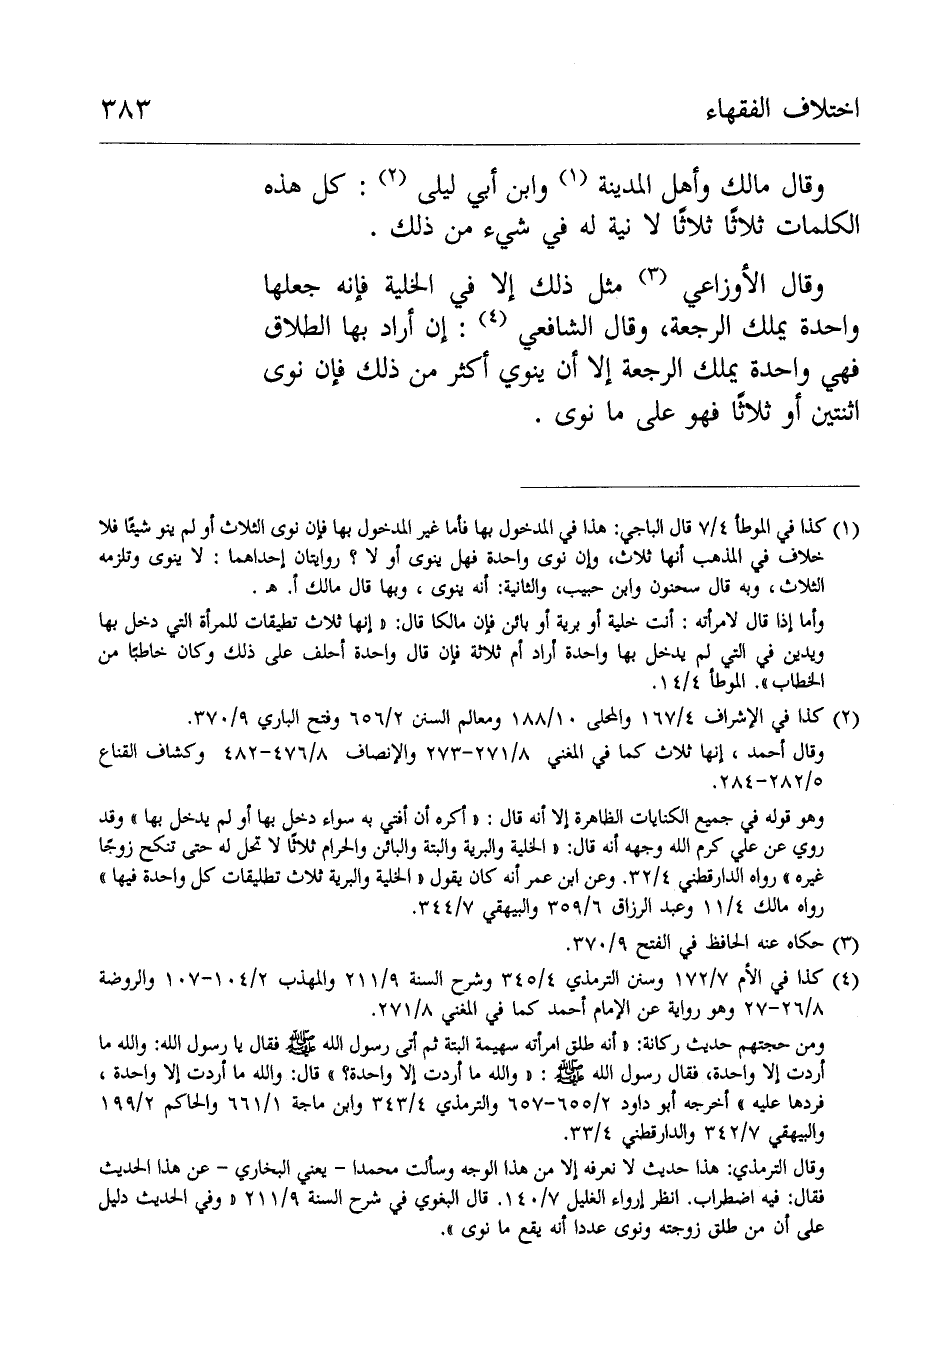 اختلاف الفقهاء ٣٨٣
وقال مالك وأهل المدينة (١) وابن أبي ليلى (٢) : كل هذه
الكلمات ثلاثًا ثلاثًا لا نية له في شيء من ذلك .
وقال الأوزاعي (٣) مثل ذلك إلا في الخلية فإنه جعلها
واحدة يملك الرجعة، وقال الشافعي (٤) : إن أراد بها الطلاق
فهي واحدة يملك الرجعة إلا أن ينوي أكثر من ذلك فإن نوى
اثنتين أو ثلاثًا فهو على ما نوى .
(١) كذا في الموطأ ٧/٤ قال الباجي: هذا في المدخول بها فأما غير المدخول بها فإن نوى الثلاث أو لم ينو شيئًا فلا
خلاف في المذهب أنها ثلاث، وإن نوى واحدة فهل ينوى أو لا ؟ روايتان إحداهما : لا ينوى وتلزمه
الثلاث ، وبه قال سحنون وابن حبيب، والثانية: أنه ينوى ، وبها قال مالك أ. هـ .
وأما إذا قال لامرأته : أنت خلية أو برية أو بائن فإن مالكا قال: « إنها ثلاث تطيقات للمرأة التي دخل بها
ويدين في التي لم يدخل بها واحدة أراد أم ثلاثة فإن قال واحدة أحلف على ذلك وكان خاطبًا من
الخطاب». الموطأ ١٤/٤.
(٢) كذا في الإشراف ١٦٧/٤ والمحلى ١٨٨/١٠ ومعالم السنن ٦٥٦/٢ وفتح الباري ٣٧٠/٩.
وقال أحمد ، إنها ثلاث كما في المغني ٢٧١/٨-٢٧٣ والإنصاف ٤٧٦/٨-٤٨٢ وكشاف القناع
٢٨٢/٥-٢٨٤.
وهو قوله في جميع الكنايات الظاهرة إلا أنه قال : « أكره أن أفتي به سواء دخل بها أو لم يدخل بها » وقد
روي عن علي كرم الله وجهه أنه قال: « الخلية والبرية والبتة والبائن والحرام ثلاثًا لا تحل له حتى تنكح زوجًا
غيره » رواه الدارقطني ٣٢/٤. وعن ابن عمر أنه كان يقول « الخلية والبرية ثلاث تطليقات كل واحدة فيها »
رواه مالك ١١/٤ وعبد الرزاق ٣٥٩/٦ والبيهقي ٣٤٤/٧.
(٣) حكاه عنه الحافظ في الفتح ٣٧٠/٩.
(٤) كذا في الأم ١٧٢/٧ وسنن الترمذي ٣٤٥/٤ وشرح السنة ٢١١/٩ والمهذب ١٠٤/٢-١٠٧ والروضة
٢٦/٨-٢٧ وهو رواية عن الإمام أحمد كما في المغني ٢٧١/٨.
ومن حجتهم حديث ركانة: « أنه طلق امرأته سهيمة البتة ثم أتى رسول الله ﷺ فقال يا رسول الله: والله ما
أردت إلا واحدة، فقال رسول الله ﷺ : « والله ما أردت إلا واحدة؟ » قال: والله ما أردت إلا واحدة ،
فردها عليه » أخرجه أبو داود ٦٥٥/٢-٦٥٧ والترمذي ٣٤٣/٤ وابن ماجة ٦٦١/١ والحاكم ١٩٩/٢
والبيهقي ٣٤٢/٧ والدارقطني ٣٣/٤.
وقال الترمذي: هذا حديث لا نعرفه إلا من هذا الوجه وسألت محمدا – يعني البخاري – عن هذا الحديث
فقال: فيه اضطراب. انظر إرواء الغليل ١٤٠/٧. قال البغوي في شرح السنة ٢١١/٩ « وفي الحديث دليل
على أن من طلق زوجته ونوى عددا أنه يقع ما نوى ».